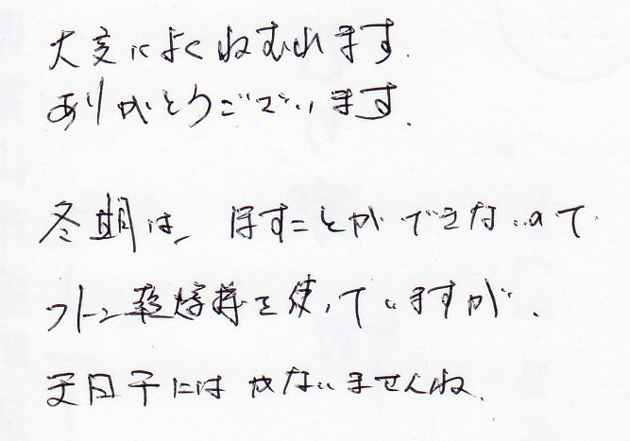 大変によくねむれます.
ありがとうございます.
冬期は、ほすことができないので
フトン乾燥機を使っていますが、
天日干にはかないませんね.